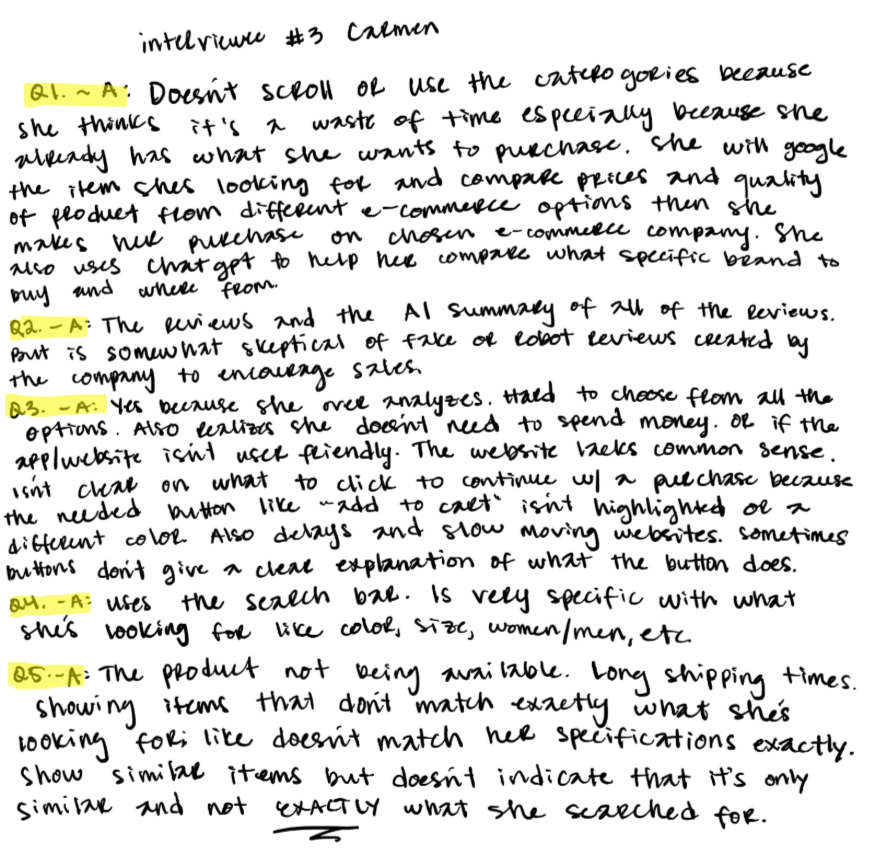 interviewee #3 Carmen
Q1. ~ A: Doesn't scroll or use the caterogories because
she thinks it's a waste of time especially because she
already has what she wants to purchase. She will google
the item shes looking for and compare prices and quality
of product from different e-commerce options then she
makes her purchase on chosen e-commerce company. She
also uses chat gpt to help her compare what specific brand to
buy and where from.
Q2. - A: The reviews and the AI summary of all of the reviews.
But is somewhat skeptical of fake or robot reviews created by
the company to encourage sales.
Q3. - A: Yes because she over analyzes. Hard to choose from all the
options. Also realizes she doesn't need to spend money. Or if the
app/website isn't user friendly. The website lacks common sense.
isn't clear on what to click to continue w/ a purchase because
the needed button like "add to cart" isn't highlighted or a
different color. Also delays and slow moving websites. sometimes
buttons don't give a clear explanation of what the button does.
Q4. - A: uses the search bar. Is very specific with what
she's looking for like color, size, women/men, etc
Q5. - A: The product not being available. Long shipping times.
Showing items that don't match exactly what she's
looking for; like doesn't match her specifications exactly.
Show similar items but doesn't indicate that it's only
similar and not EXACTLY what she searched for.